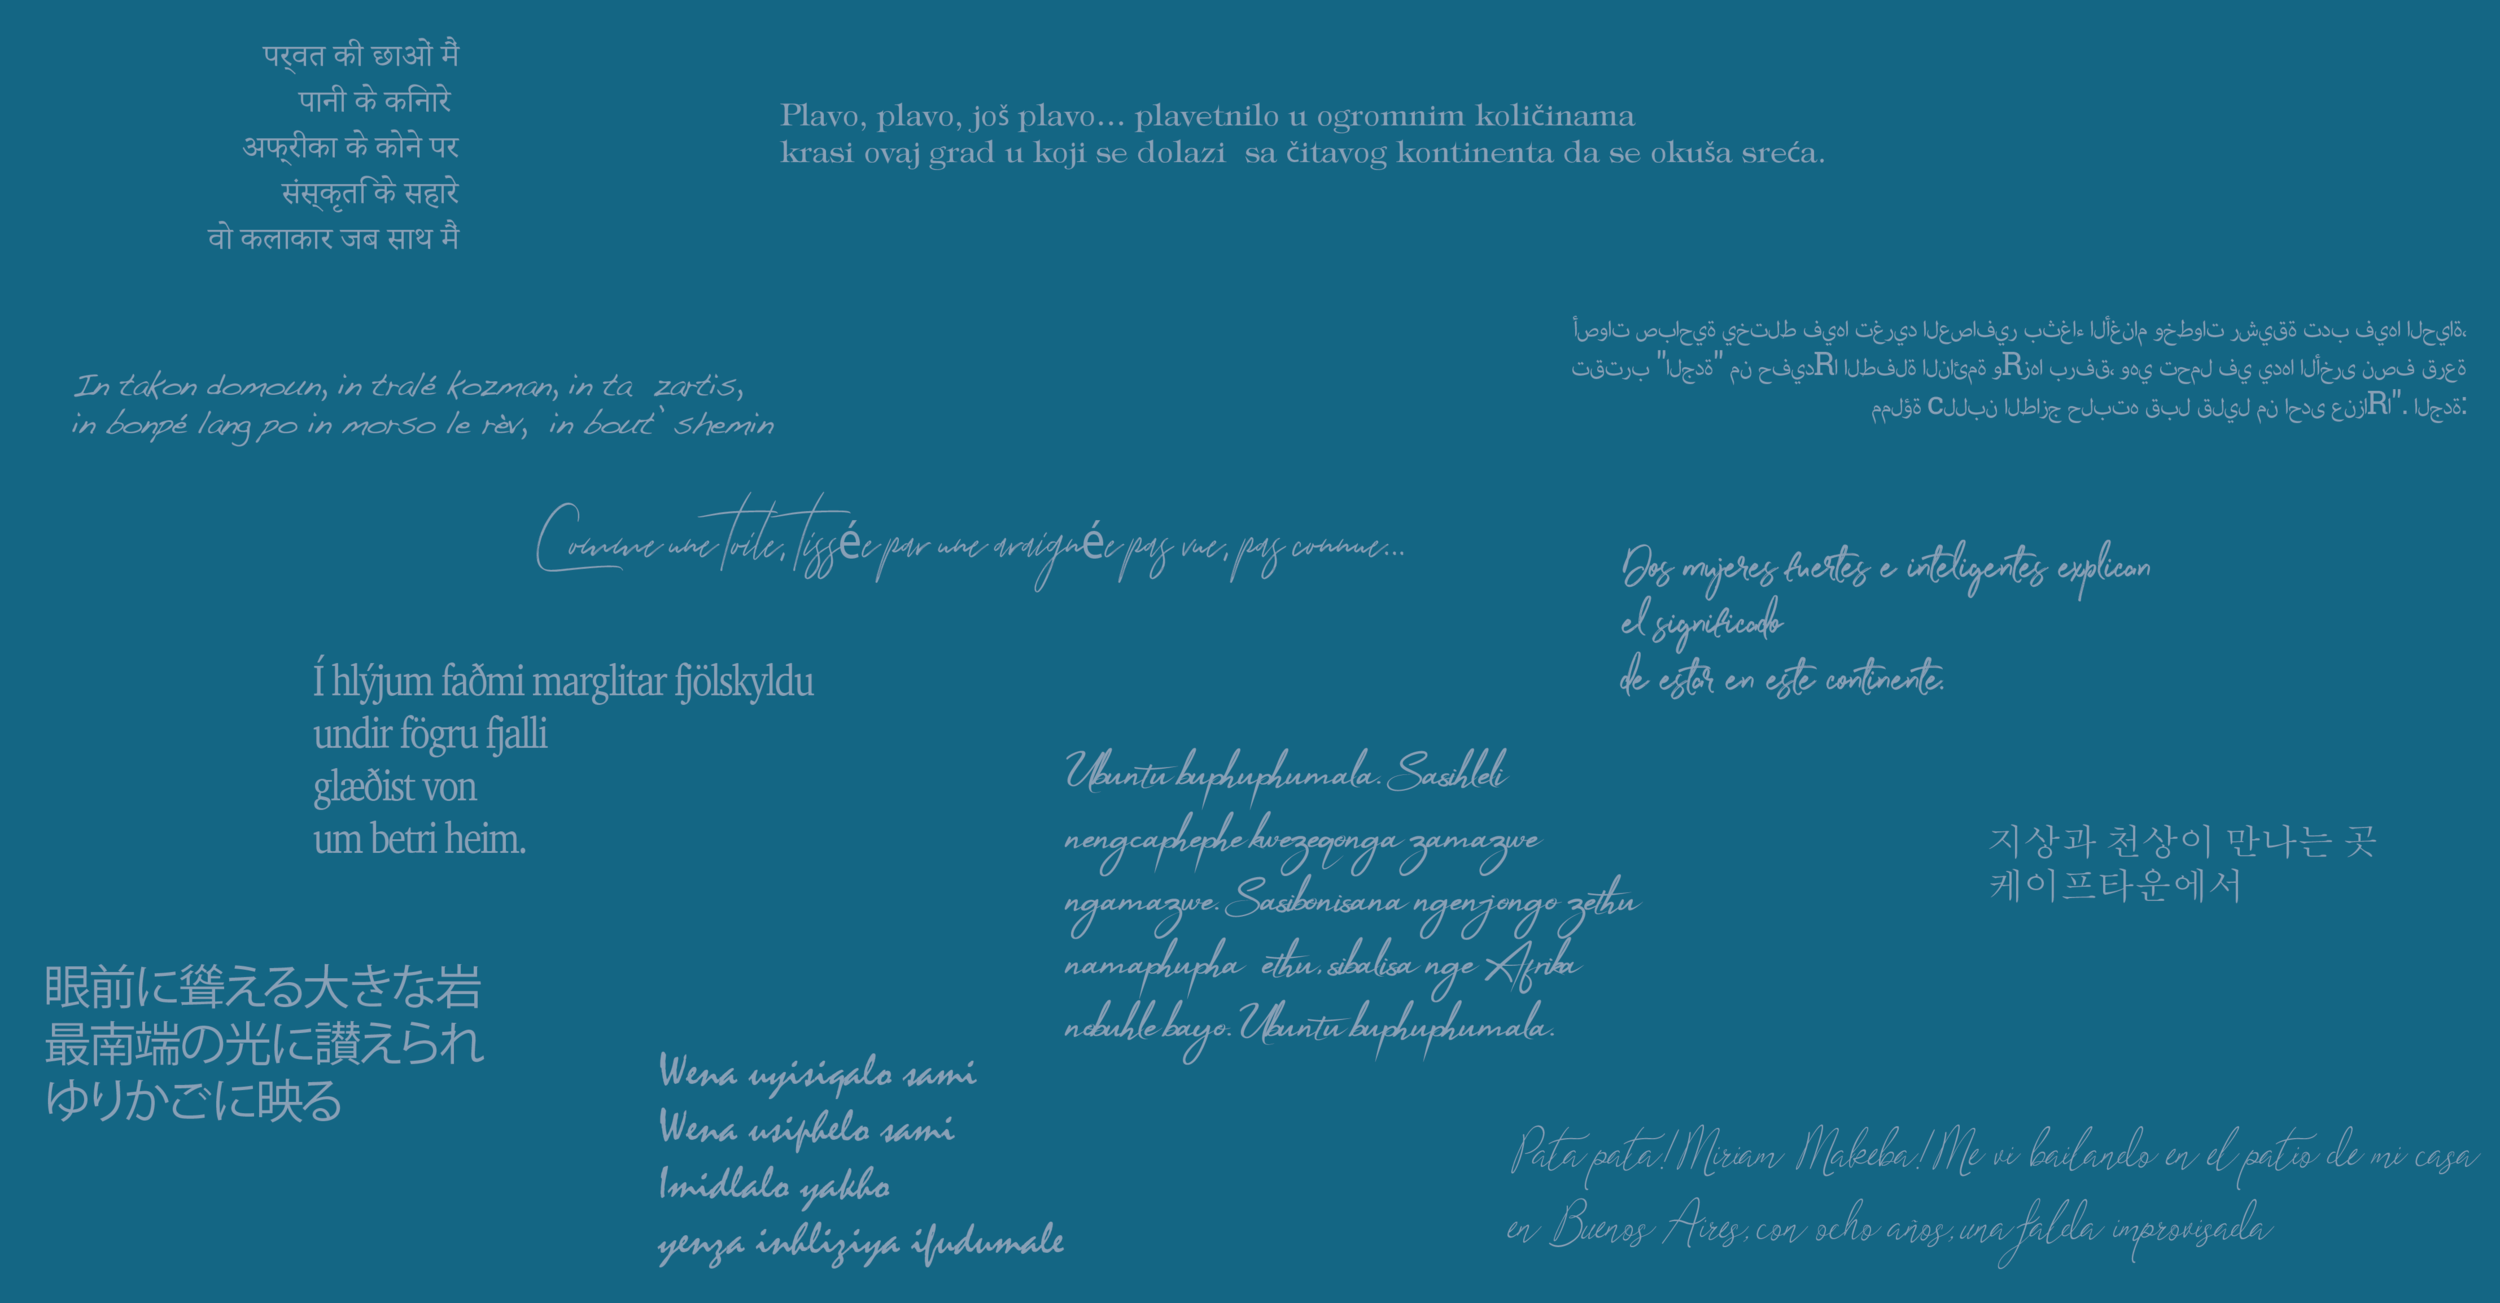 पर्‌वत की छाओ मै
पानी के कनिारे
अफ्‌रीका के कोने पर
संस्‌कृति के सहारे
वो कलाकार जब साथ मै
Plavo, plavo, još plavo... plavetnilo u ogromnim količinama
krasi ovaj grad u koji se dolazi sa čitavog kontinenta da se okuša sreća.
أصوات صباحية يختلط فيها تغريد العصافير بثغاء الأغنام وخطوات رشيقة تدب فيها الحياة،
تقترب "الجدة" من حفيدRا الطفلة النائمة وRزها برفق، وهي تحمل في يدها الأخرى نصف قرعة
مملؤة cللبن الطازج حلبته قبل قليل من احدى عنزاRا". الجدة:
In takon domoun, in tralé kozman, in ta zartis,
in bonpé lang po in morso le rèv, in bout' shemin
Comme une toile, tissée par une araignée pas vue, pas connue...
Dos mujeres fuertes e inteligentes explican
el significado
de estar en este continente.
Í hlýjum faðmi marglitar fjölskyldu
undir fögru fjalli
glæðist von
um betri heim.
Ubuntu buphuphumala. Sasihleli
nengcaphephe kwezeqonga zamazwe
ngamazwe. Sasibonisana ngenjongo zethu
namaphupha ethu, sibalisa nge Afrika
nobuhle bayo. Ubuntu buphuphumala.
지상과 천상이 만나는 곳
케이프타운에서
眼前に聳える大きな岩
最南端の光に讃えられ
ゆりかごに映る
Wena uyisiqalo sami
Wena usiphelo sami
Imidlalo yakho
yenza inhliziya ifudumale
Pata pata! Miriam Makeba! Me vi bailando en el patio de mi casa
en Buenos Aires, con ocho años, una falda improvisada